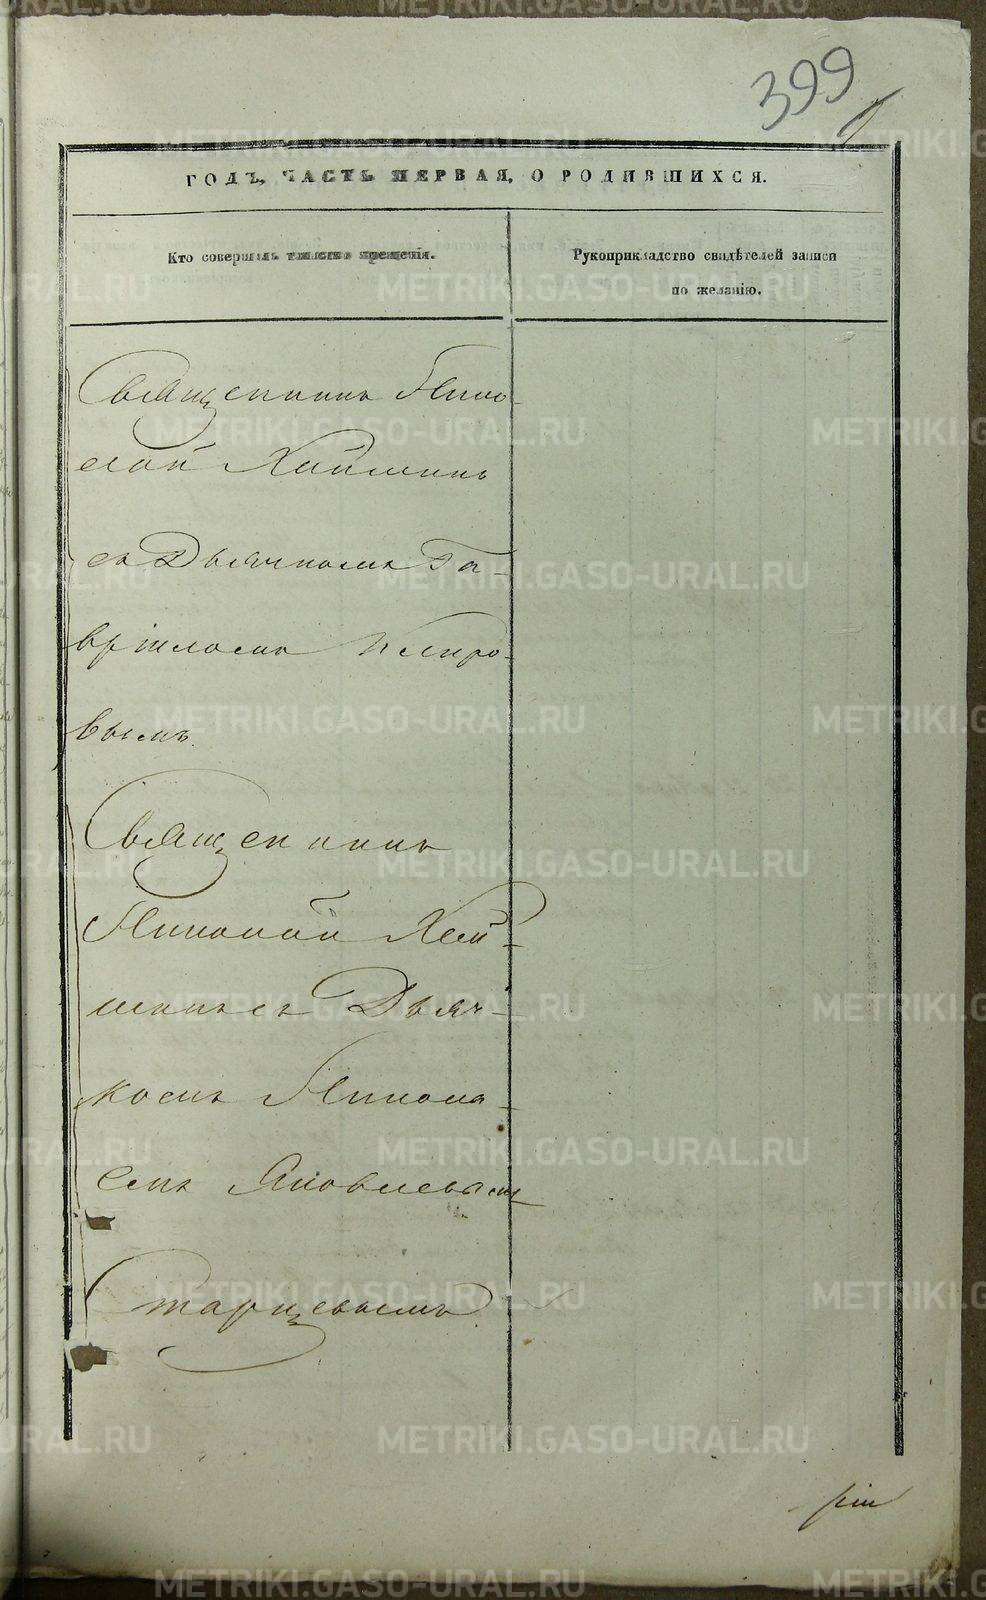 399
ГОДЪ, ЧАСТЬ ПЕРВАЯ, О РОДИВШИХСЯ.
Кто совершалъ таинство крещенія.
Рукоприкладство свидѣтелей записи
по желанію.
Священникъ Нико-
лай Хаймынъ
съ Дьячкомъ Га-
вріиломъ
вымъ.
Священникъ
Николай
съ Дьяч-
комъ Никола-
емъ Яковлевым
Старцевымъ
METRIKI.GASO-URAL.RU